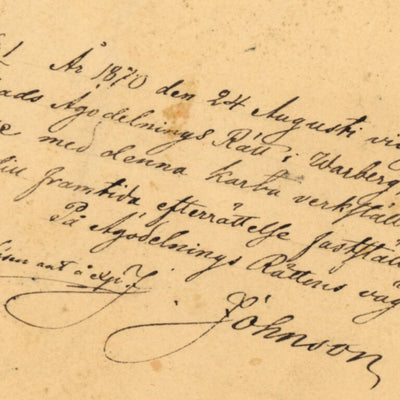 År 1870 den 24 Augusti vid
Ägodelnings Rätt i Warberg
med denna karta verkställ
framtida efterrättelse fastställ
På Ägodelnings Rättens väg
Johnson